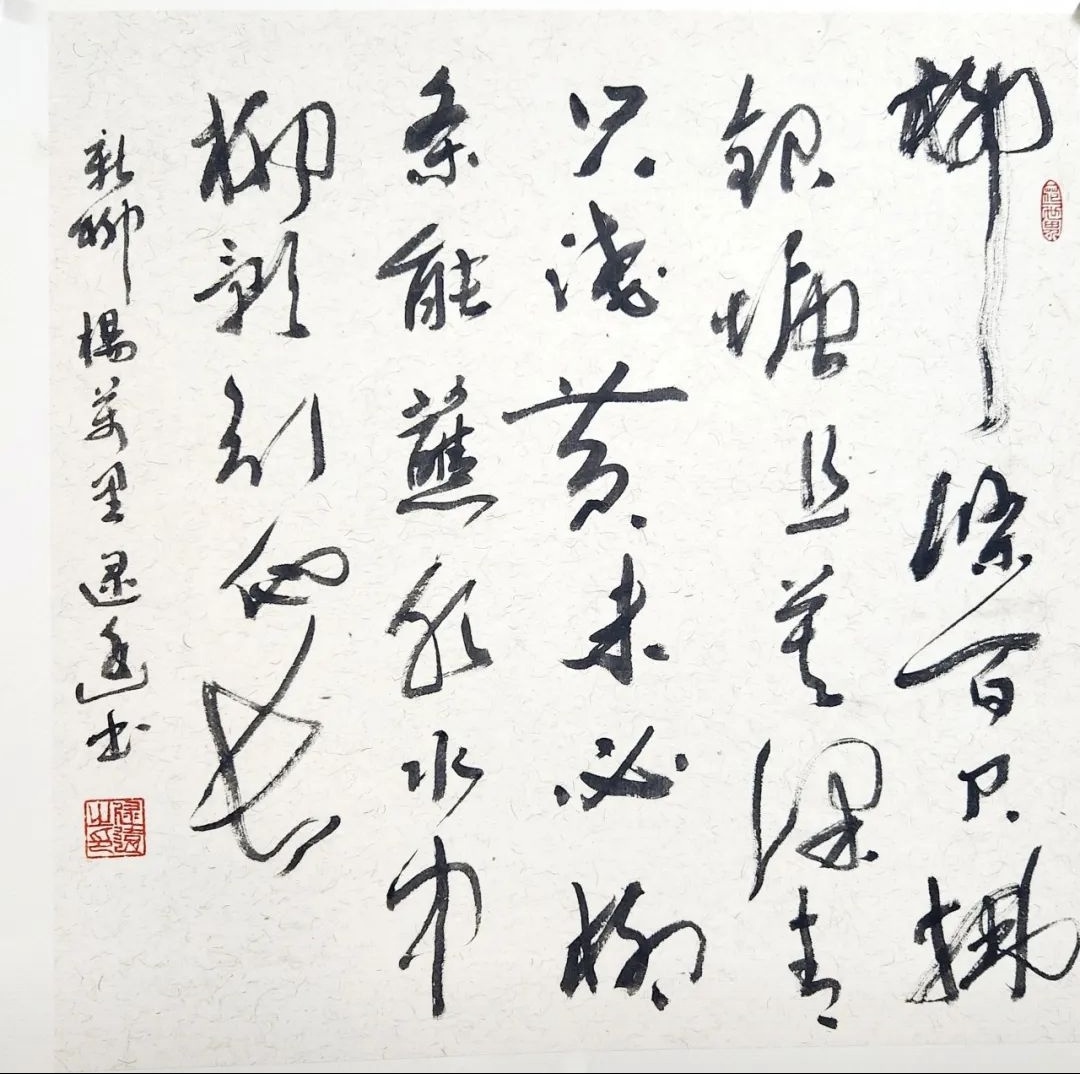 柳條百尺拂
銀塘且莫深青
只淺黄未必柳
条能蘸水水中
柳影引他长
新柳楊萬里逯遠书